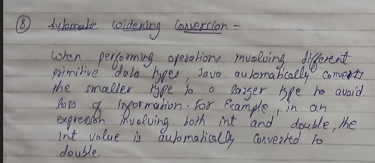 ⑧ Automatic Widening Conversion -
When performing operations involving different
primitive data types, Java automatically converts
the smaller type to a larger type to avoid
loss of information. For Example, in an
expression involving both int and double, the
int value is automatically converted to
double.